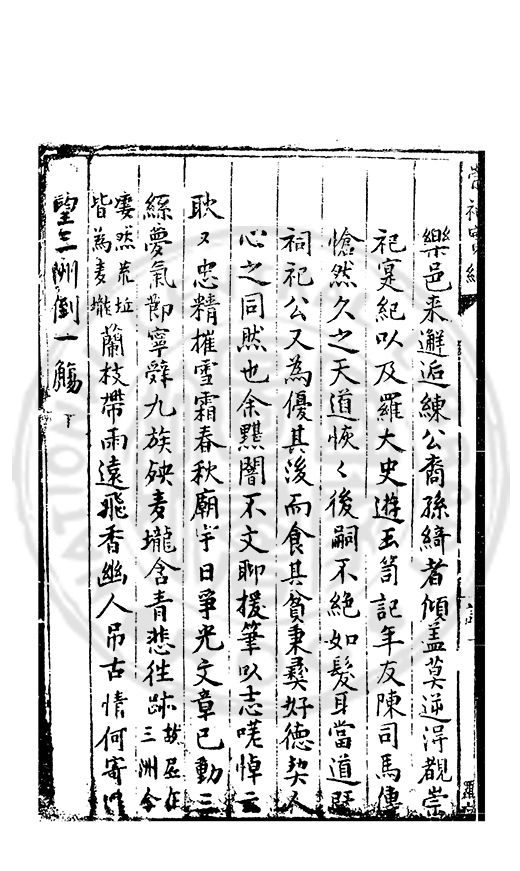 樂邑来邂逅練公裔孫綺者傾盖莫逆淂覩崇
祀寔紀以及羅大史遊玉笥記年友陳司馬傳
愴然久之天道恢〻後嗣不絕如髮耳當道既
祠祀公又為優其後而食其貧秉彞好德契人
心之同然也余黯闇不文聊援筆以志嘆悼云
耿〻忠精摧雪霜春秋廟宇日爭光文章已動三
絲夢氣節寧辭九族殃麦壠含青悲徃跡
故居在三洲今
凄然荒垃皆為麦壠
蘭枝帶雨遠飛香幽人吊古情何寄
望三洲倒一觴